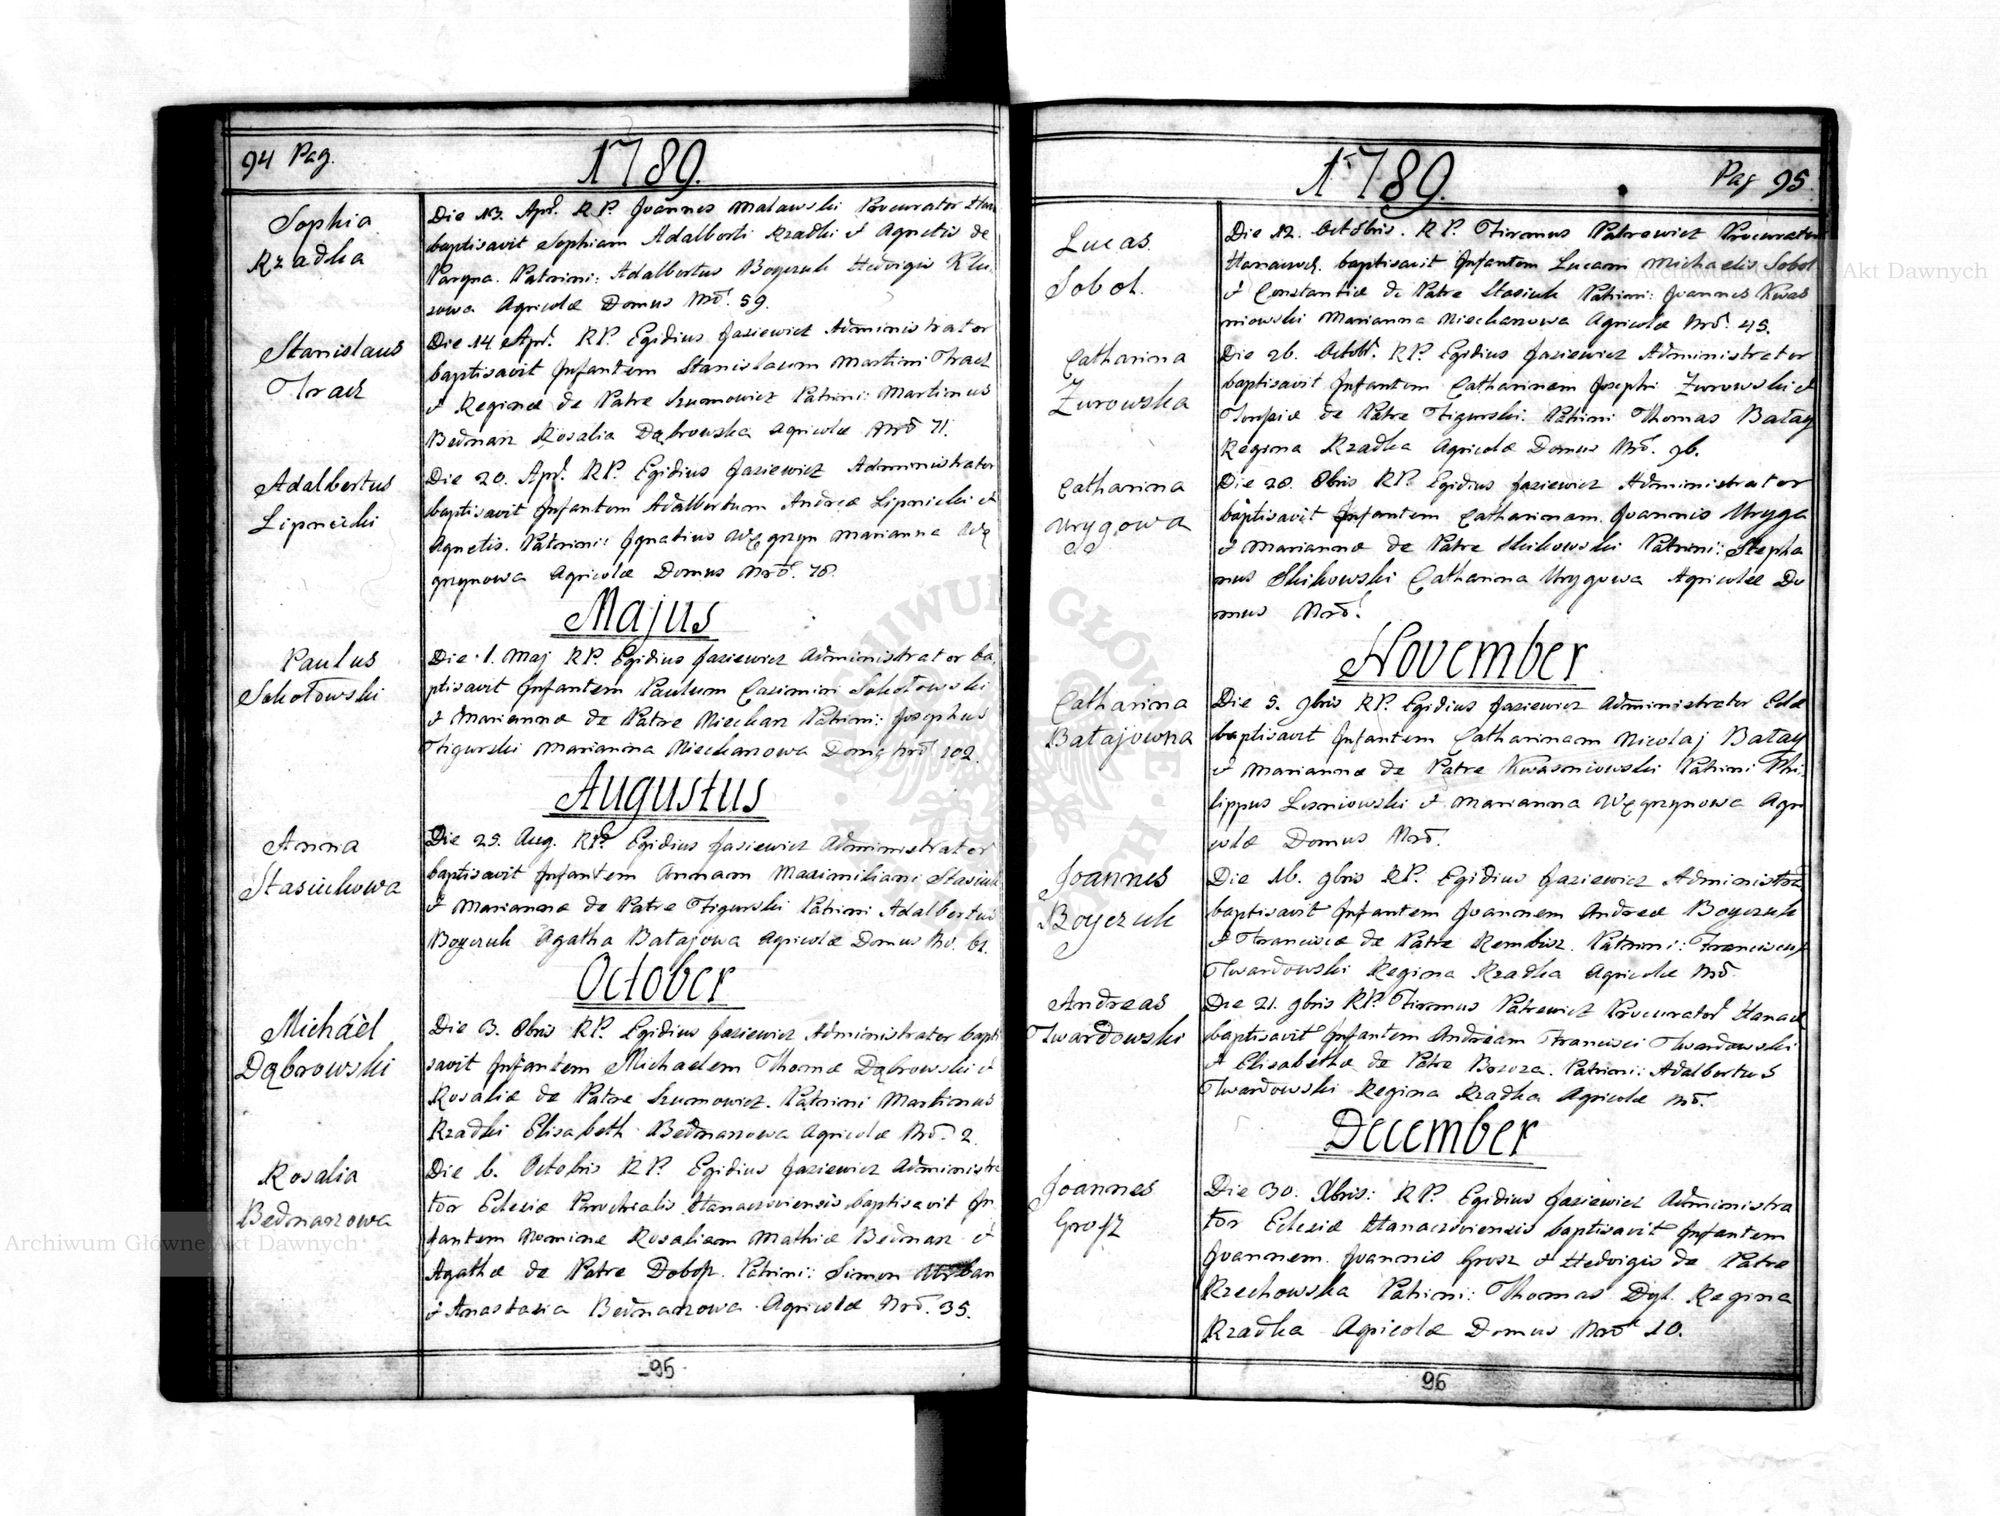 94 Pag.
1789.
Sophia
Rzadka
Die 13. Apr. RP. Joannes Malawski Procurator Han
baptisavit Sophiam Adalberti Rzadki et Agnetis de
Parysa. Patrini: Adalbertus Boyczuk Hedvigis Klu
sowa Agricolæ Domus Nrō. 59.
Stanislaus
Tracz
Die 14 Apr. RP. Egidius Jaziewicz Administrator
baptisavit Infantem Stanislaum Martini Tracz
et Reginæ de Patre Szumowicz Patrini: Martinus
Bednarz Rosalia Dąbrowska Agricolæ Nrō 71.
Adalbertus
Lipnicki
Die 20. Apr. RP. Egidius Jaziewicz Administrator
baptisavit Infantem Adalbertum Andreæ Lipnicki et
Agnetis. Patrini: Ignatius Węgrzyn Marianna Wę
grzynowa Agricolæ Domus Nrō. 78.
Majus
Paulus
Sokołowski
Die 1. Maj RP. Egidius Jaziewicz Administrator ba
ptisavit Infantem Paulum Casimiri Sokołowski
et Mariannæ de Patre Niecharz Patrini: Josephus
Figurski Marianna Niecharzowa Domg Nrō 102.
Augustus
Anna
Stasiukowa
Die 25. Aug. RP. Egidius Jaziewicz Administrator
baptisavit Infantem Annam Maximiliani Stasiuk
et Mariannæ de Patre Figurski Patrini Adalbertus
Boyczuk Agatha Batajowa Agricolæ Domus No. 62.
October
Michäel
Dąbrowski
Die 3. 8bris RP. Egidius Jaziewicz Administrator bapti
savit Infantem Michaelem Thomæ Dąbrowski et
Rosaliæ de Patre Szumowicz. Patrini Martinus
Rzadki Elisabeth Bednarzowa Agricolæ Nrō. 2.
Rosalia
Bednarzowa
Die 6. Octobris RP. Egidius Jaziewicz Administra
tor Eclesiæ Parochialis Hanaczoviensis baptisavit In
fantem Nomine Rosaliam Mathiæ Bednarz et
Agathæ de Patre Dobosz. Patrini: Simon Urban
et Anastasia Bednarzowa Agricolæ Nrō. 35.
95
1789.
Pag 95.
Lucas
Sobol.
Die 12. Octobris. RP. Firmus Patrewicz Procurator
Hanaczov. baptisavit Infantem Lucam Michaelis Sobol
et Constantiæ de Patre Stasiuk Patrini: Joannes Kwas
niowski Marianna Niecharzowa Agricolæ Nrō. 45.
Catharina
Żurowska
Die 26. Octobr. RP. Egidius Jaziewicz Administrator
baptisavit Infantem Catharinam Josephi Żurowski et
de Patre Figurski. Patrini Thomas Batay
Regina Rzadka Agricolæ Domus Nrō. 96.
Catharina
Urygowa
Die 28. 8bris RP. Egidius Jaziewicz Administrator
baptisavit Infantem Catharinam. Joannis Uryga
et Mariannæ de Patre Skikowski Patrini: Stepha
nus Skikowski Catharina Urygowa Agricolæ Do
mus Nrō.
November
Catharina
Batajowna
Die 5. 9bris RP. Egidius Jaziewicz Administrator Eclæ
baptisavit Infantem Catharinam Nicolaj Batay
et Mariannæ de Patre Kwasniowski Patrini Phi
lippus Lesniowski et Marianna Węgrzynowa Agri
colæ Domus Nrō.
Joannes
Boyczuk
Die 16. 9bris RP. Egidius Jaziewicz Administra
baptisavit Infantem Joannem Andreæ Boyczuk
et Franciscæ de Patre Rembisz. Patrini: Franciscus
Twardowski Regina Rzadka Agricolæ Nrō.
Andreas
Twardowski
Die 21. 9bris RP. Firmus Patrewicz Procurator Hanacz
baptisavit Infantem Andream Francisci Twardowski
et Elisabethæ de Patre Patrini: Adalbertus
Twardowski Regina Rzadka Agricolæ Nrō.
December
Joannes
Grosz
Die 30. Xbris: RP. Egidius Jaziewicz Administra
tor Eclesiæ Hanaczoviensis baptisavit Infantem
Joannem Joannis Grosz et Hedvigis de Patre
Rzechowska Patrini: Thomas Dyl. Regina
Rzadka Agricolæ Domus Nrō 10.
96
Archiwum Główne Akt Dawnych
Archiwum Główne Akt Dawnych